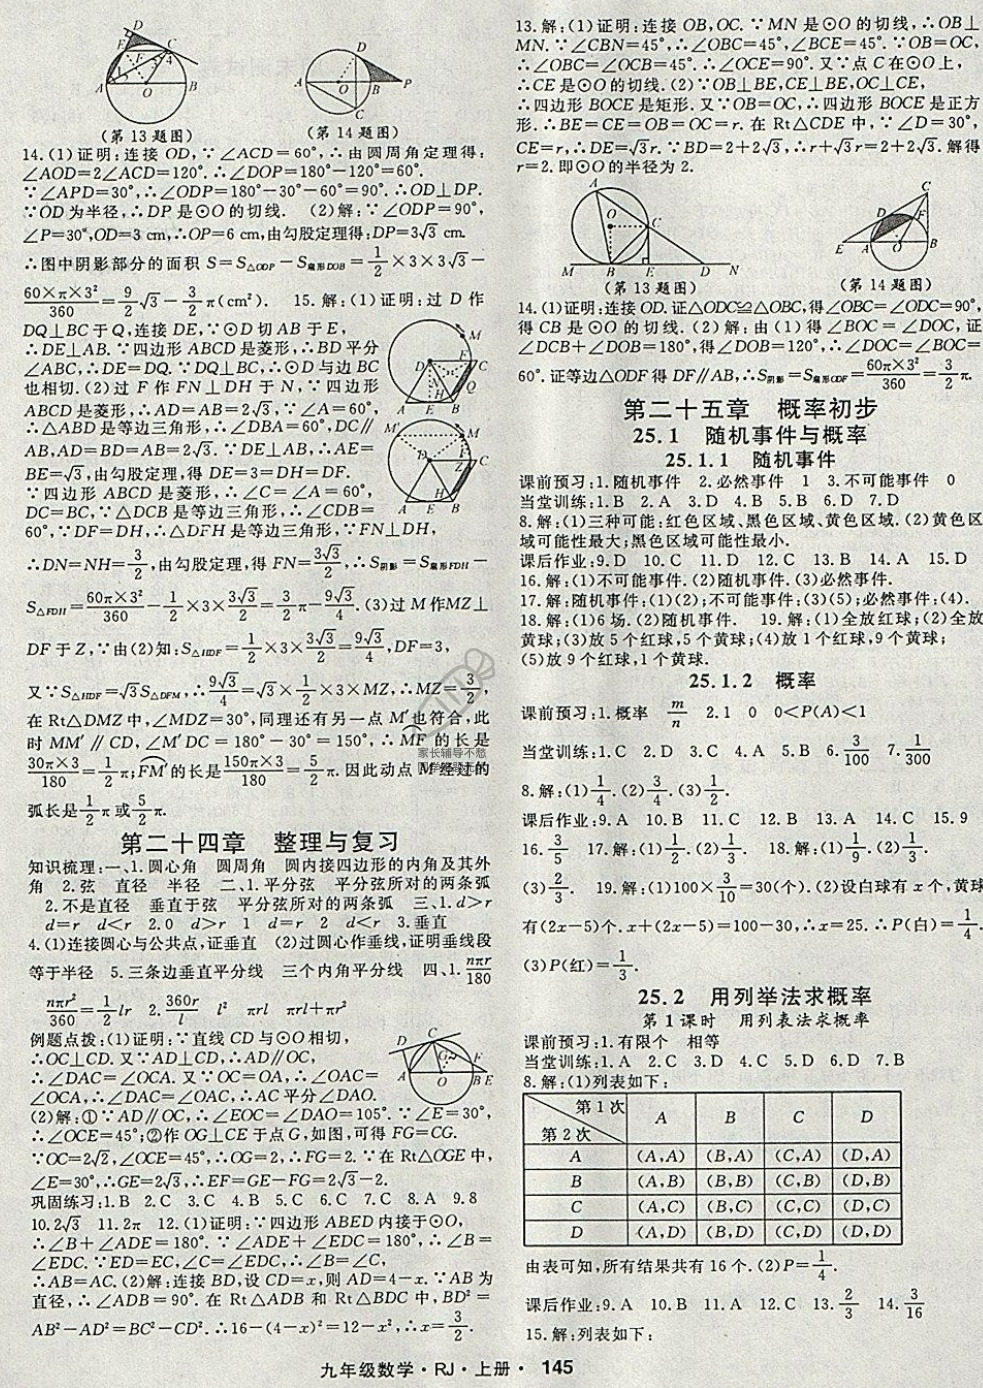 (第13题图)
(第14题图)
14.(1)证明:连接 OD,∵∠ACD=60°,∴由圆周角定理得:
∠AOD=2∠ACD=120°.∴∠DOP=180°-120°=60°.
∵∠APD=30°,∴∠ODP=180°-30°-60°=90°.∴OD⊥DP.
∵OD为半径,∴DP是⊙O的切线. (2)解:∵∠ODP=90°,
∠P=30°,OD=3 cm,∴OP=6 cm,由勾股定理得:DP=3√3 cm.
∴图中阴影部分的面积 S=S△ODP-S扇形DOB=1/2×3×3√3-
60×π×3²/360=9/2√3-3/2π(cm²). 15.解:(1)证明:过 D 作
DQ⊥BC于Q,连接DE,∵⊙D切AB于E,
∴DE⊥AB.∵四边形ABCD是菱形,∴BD平分
∠ABC,∴DE=DQ.∵DQ⊥BC,∴⊙D与边BC
也相切.(2)过 F 作 FN⊥DH 于 N,∵四边形
ABCD是菱形,∴AD=AB=2√3,∵∠A=60°,
∴△ABD是等边三角形,∴∠DBA=60°,DC∥
AB,AD=BD=AB=2√3.∵DE⊥AB,∴AE=
BE=√3,由勾股定理,得DE=3=DH=DF.
∵四边形 ABCD 是菱形,∴∠C=∠A=60°,
DC=BC,∵△DCB是等边三角形,∴∠CDB=
60°,∵DF=DH,∴△DFH是等边三角形,∵FN⊥DH,
∴DN=NH=3/2,由勾股定理,得 FN=3√3/2,∴S阴影=S扇形FDH-
S△FDH=60π×3²/360-1/2×3×3√3/2=3/2π-9√3/4.(3)过M作MZ⊥
DF于Z,∵由(2)知:S△HDF=1/2×3×3√3/2=9√3/4,DF=3,
又∵S△HDF=√3S△DFM,∴9√3/4=√3×1/2×3×MZ,∴MZ=3/2,
在Rt△DMZ中,∠MDZ=30°,同理还有另一点M′也符合,此
时 MM′∥CD,∠M′DC=180°-30°=150°,∴MF的长是
30π×3/180=1/2π;FM′的长是150π×3/180=5/2π.因此动点M经过的
弧长是1/2π或5/2π.
第二十四章 整理与复习
知识梳理:一、1.圆心角 圆周角 圆内接四边形的内角及其外
角 2.弦 直径 半径 二、1.平分弦 平分弦所对的两条弧
2.不是直径 垂直于弦 平分弦所对的两条弧 三、1.d>r
d=r d<r 2.0 d>r 1 d=r 2 d<r 3.垂直
4.(1)连接圆心与公共点,证垂直 (2)过圆心作垂线,证明垂线段
等于半径 5.三条边垂直平分线 三个内角平分线 四、1.nπr/180
nπr²/360=1/2lr 2.360r/l l² πrl πrl+πr²
例题点拨:(1)证明:∵直线CD与⊙O相切,
∴OC⊥CD.又∵AD⊥CD,∴AD∥OC,
∴∠DAC=∠OCA.又∵OC=OA,∴∠OAC=
∠OCA,∴∠DAC=∠OAC,∴AC平分∠DAO.
(2)解:①∵AD∥OC,∴∠EOC=∠DAO=105°.∵∠E=30°,
∴∠OCE=45°;②作OG⊥CE于点G,如图,可得FG=CG.
∵OC=2√2,∠OCE=45°,∴OG=2,∴FG=2.∵在Rt△OGE中,
∠E=30°,∴GE=2√3,∴EF=GE-FG=2√3-2.
巩固练习:1.B 2.C 3.C 4.B 5.C 6.C 7.C 8.A 9.8
10.2√3 11.2π 12.(1)证明:∵四边形ABED内接于⊙O,
∴∠B+∠ADE=180°.∵∠ADE+∠EDC=180°,∴∠B=
∠EDC.∵ED=EC,∠C=∠EDC,∴∠B=∠C,
∴AB=AC.(2)解:连接BD,设CD=x,则AD=4-x.∵AB为
直径,∴∠ADB=90°.在 Rt△ADB 和 Rt△BDC 中,BD²=
AB²-AD²=BC²-CD².∴16-(4-x)²=12-x²,∴x=3/2.
13.解:(1)证明:连接OB,OC.∵MN是⊙O的切线,∴OB⊥
MN.∵∠CBN=45°,∴∠OBC=45°,∠BCE=45°.∵OB=OC,
∴∠OBC=∠OCB=45°.∴∠OCE=90°.又∵点C在⊙O上,
∴CE是⊙O的切线.(2)∵OB⊥BE,CE⊥BE,OC⊥CE,
∴四边形BOCE是矩形.又∵OB=OC,∴四边形BOCE是正方
形.∴BE=CE=OB=OC=r.在 Rt△CDE 中,∵∠D=30°,
CE=r,∴DE=√3r.∵BD=2+2√3,∴r+√3r=2+2√3.解得
r=2.即⊙O的半径为 2.
(第13题图)
(第14题图)
14.(1)证明:连接OD.证△ODC≌△OBC,得∠OBC=∠ODC=90°,
得 CB 是⊙O 的切线.(2)解:由(1)得∠BOC=∠DOC,证
∠DCB+∠DOB=180°,得∠DOB=120°,∴∠DOC=∠BOC=
60°.证等边△ODF得DF∥AB,∴S阴影=S扇形ODF=60π×3²/360=3/2π.
第二十五章 概率初步
25.1 随机事件与概率
25.1.1 随机事件
课前预习:1.随机事件 2.必然事件 1 3.不可能事件 0
当堂训练:1.B 2.A 3.D 4.B 5.B 6.D 7.D
8.解:(1)三种可能:红色区域、黑色区域、黄色区域.(2)黄色区
域可能性最大;黑色区域可能性最小.
课后作业:9.D 10.C 11.D 12.C 13.B 14.A 15.D
16.解:(1)不可能事件.(2)随机事件.(3)必然事件.
17.解:随机事件:(1)(2);不可能事件:(3)(5);必然事件:(4).
18.解:(1)6场.(2)随机事件. 19.解:(1)全放红球;(2)全放
黄球;(3)放5个红球,5个黄球;(4)放1个红球,9个黄球;
(5)放9个红球,1个黄球.
25.1.2 概率
课前预习:1.概率 m/n 2.1 0 0<P(A)<1
当堂训练:1.C 2.D 3.C 4.A 5.B 6.3/100 7.1/300
8.解:(1)1/4.(2)3/4.(3)1/2.
课后作业:9.A 10.B 11.C 12.B 13.A 14.C 15.9
16.3/5 17.解:(1)1/2.(2)1/4. 18.解:(1)1/9.(2)1/3.
(3)2/3. 19.解:(1)100×3/10=30(个).(2)设白球有x个,黄球
有(2x-5)个.x+(2x-5)=100-30,∴x=25.∴P(白)=1/4.
(3)P(红)=1/3.
25.2 用列举法求概率
第1课时 用列表法求概率
课前预习:1.有限个 相等
当堂训练:1.A 2.C 3.D 4.C 5.D 6.D 7.B
8.解:(1)列表如下:
第1次 A B C D
第2次
A (A,A) (B,A) (C,A) (D,A)
B (A,B) (B,B) (C,B) (D,B)
C (A,C) (B,C) (C,C) (D,C)
D (A,D) (B,D) (C,D) (D,D)
由表可知,所有结果共有16个.(2)P=1/4.
课后作业:9.A 10.B 11.A 12.C 13.2/3 14.3/16
15.解:列表如下:
九年级数学·RJ·上册· 145